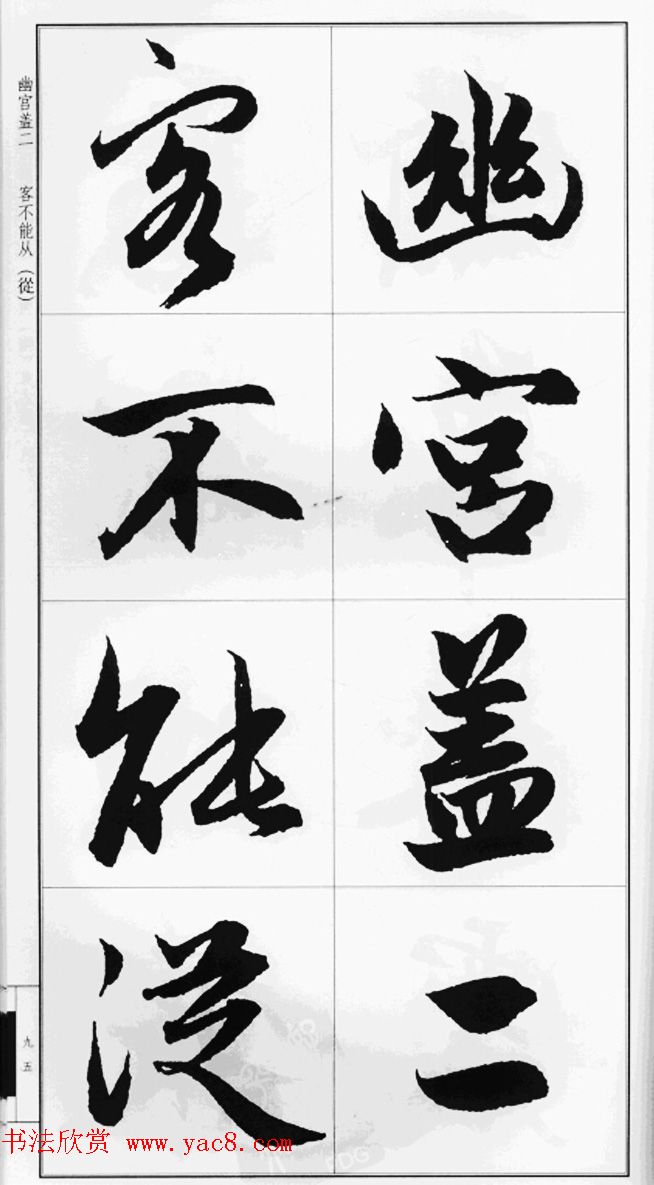 幽宫盖二
客不能從
幽宫盖二 客不能从（從）
九五
书法欣赏 www.yac8.com